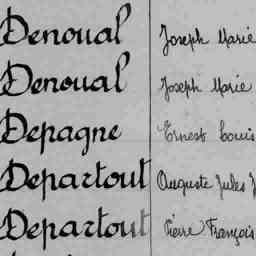 Denoual Joseph Marie
Denoual Joseph Marie
Depagne Ernest Louis
Departout Auguste Jules
Departout Pierre François